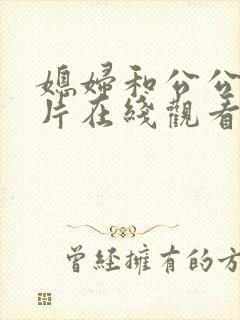 媳婦和公公
片在綫觀看
曾經擁有的方